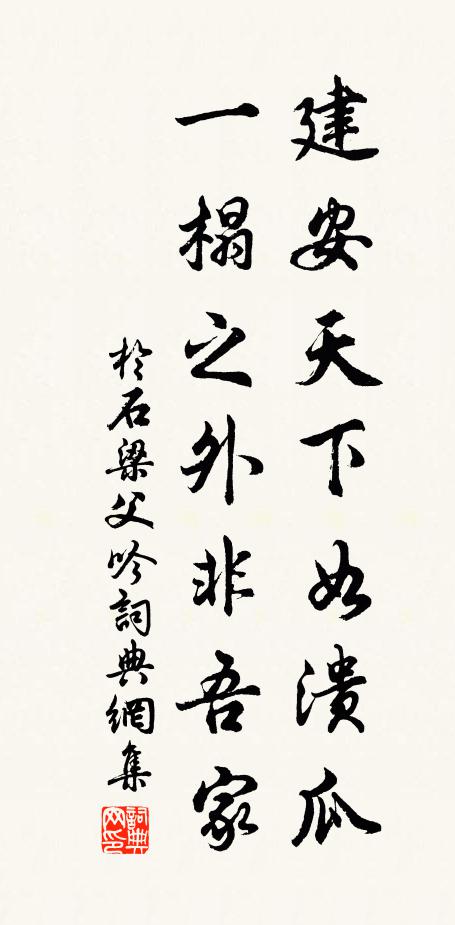 建安天下如潰瓜
一榻之外非吾家
於石梁父吟詞典網集
詞典網印